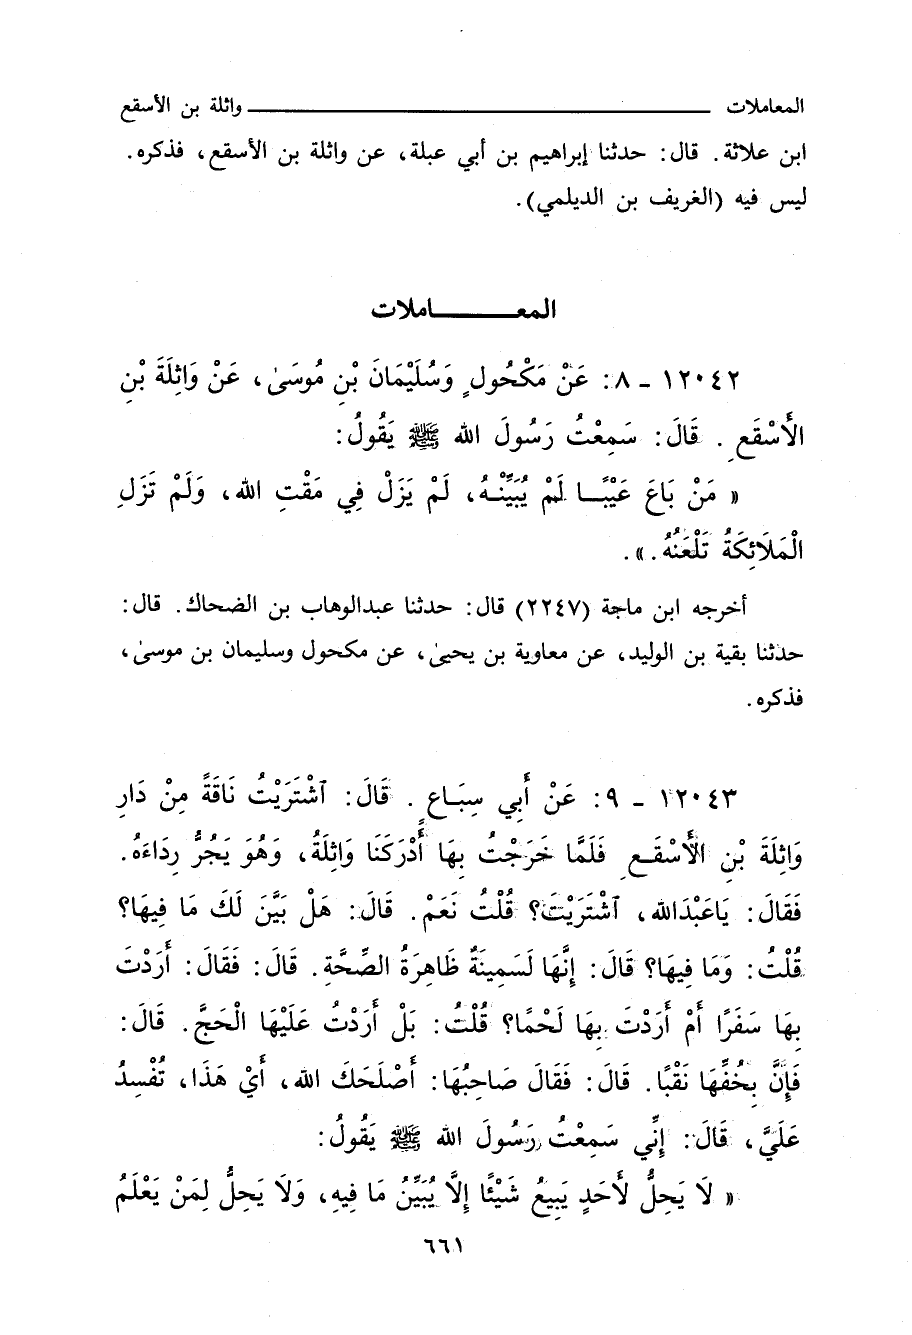 المعاملات ــــــــــــــــــــــــــــ واثلة بن الأسقع
ابن علاثة. قال: حدثنا إبراهيم بن أبي عبلة، عن واثلة بن الأسقع، فذكره.
ليس فيه (الغريف بن الديلمي).
المعـــــــاملات
١٢٠٤٢ - ٨: عَنْ مَكْحُولٍ وَسُلَيْمَانَ بْنِ مُوسَىٰ، عَنْ وَاثِلَةَ بْنِ
الأَسْقَعِ. قَالَ: سَمِعْتُ رَسُولَ الله ﷺ يَقُولُ:
« مَنْ بَاعَ عَيْبًـا لَمْ يُبَيِّنْـهُ، لَمْ يَزَلْ فِي مَقْتِ الله، وَلَمْ تَزَلِ
الْمَلَائِكَةُ تَلْعَنُهُ.».
أخرجه ابن ماجة (٢٢٤٧) قال: حدثنا عبدالوهاب بن الضحاك. قال:
حدثنا بقية بن الوليد، عن معاوية بن يحيىٰ، عن مكحول وسليمان بن موسىٰ،
فذكره.
١٢٠٤٣ - ٩: عَنْ أَبِي سِبَـاعٍ. قَالَ: ٱشْتَرَيْتُ نَاقَةً مِنْ دَارِ
وَاثِلَةَ بْنِ الأَسْقَـعِ فَلَمَّا خَرَجْتُ بِهَا أَدْرَكَنَا وَاثِلَةُ، وَهُوَ يَجُرُّ رِدَاءَهُ.
فَقَالَ: يَاعَبْدَالله، ٱشْتَرَيْتَ؟ قُلْتُ نَعَمْ. قَالَ: هَلْ بَيَّنَ لَكَ مَا فِيهَا؟
قُلْتُ: وَمَا فِيهَا؟ قَالَ: إِنَّهَا لَسَمِينَةٌ ظَاهِرَةُ الصِّحَّةِ. قَالَ: فَقَالَ: أَرَدْتَ
بِهَا سَفَرًا أَمْ أَرَدْتَ بِهَا لَحْمًا؟ قُلْتُ: بَلْ أَرَدْتُ عَلَيْهَا الْحَجَّ. قَالَ:
فَإِنَّ بِخُفِّهَا نَقْبًا. قَالَ: فَقَالَ صَاحِبُهَا: أَصْلَحَكَ الله، أَيْ هَذَا، تُفْسِدُ
عَلَيَّ، قَالَ: إِنِّي سَمِعْتُ رَسُولَ الله ﷺ يَقُولُ:
« لَا يَحِلُّ لأَحَدٍ يَبِيعُ شَيْئًا إِلَّا يُبَيِّنُ مَا فِيهِ، وَلَا يَحِلُّ لِمَنْ يَعْلَمُ
٦٦١